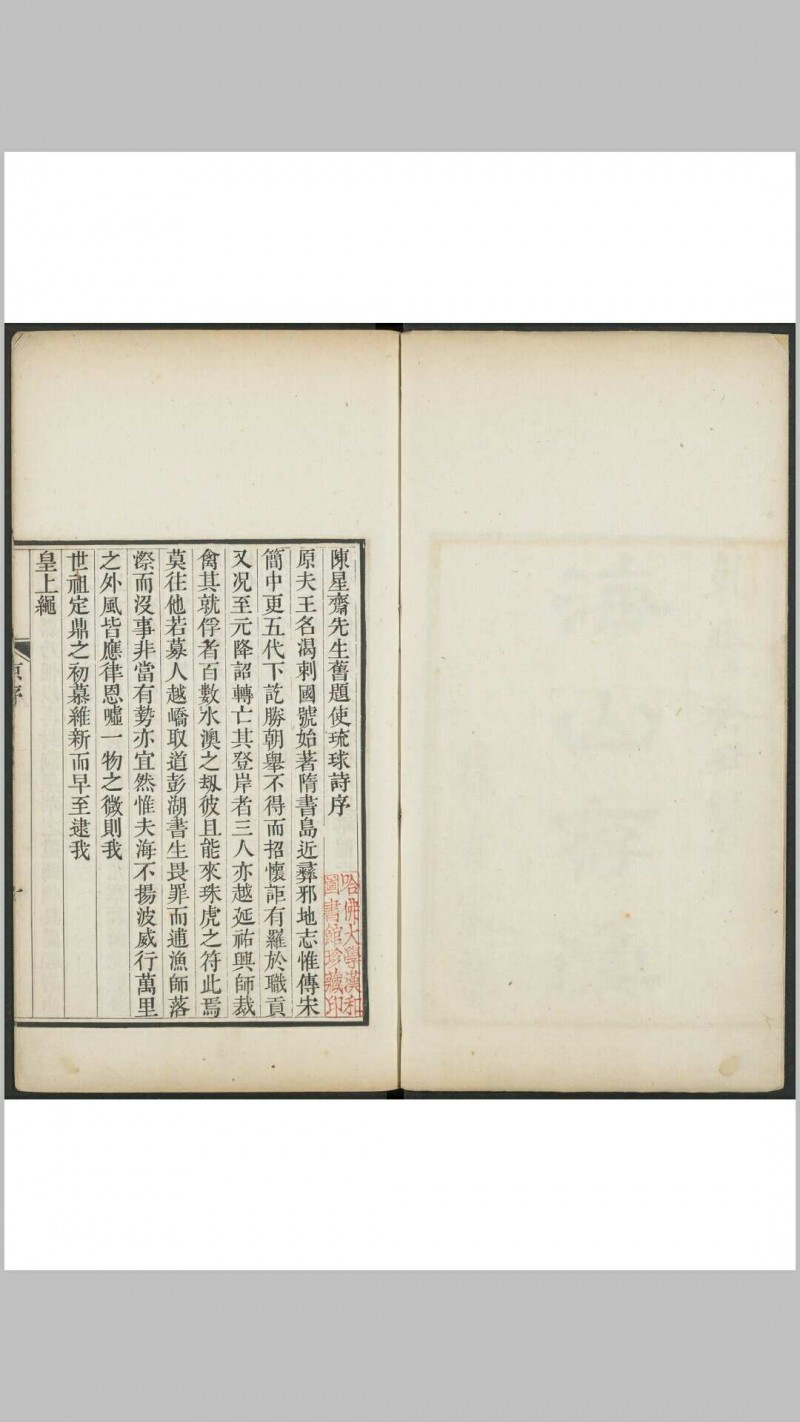 陳星齋先生舊題使琉球詩序
原夫王名渴刺國號始著隋書島近彞邪地志惟傳宋
簡中更五代下訖勝朝舉不得而招懷詎有羅於職貢
又况至元降詔轉亡其登岸者三人亦越延祐興師裁
禽其就俘者百數水澳之刼彼且能來珠虎之符此焉
莫往他若募人越嶠取道彭湖書生畏罪而逋漁師落
漈而沒事非當有勢亦宜然惟夫海不揚波威行萬里
之外風皆應律恩噓一物之微則我
世祖定鼎之初慕維新而早至逮我
皇上繩
原序
一
哈佛大學漢和
圖書館珍藏印